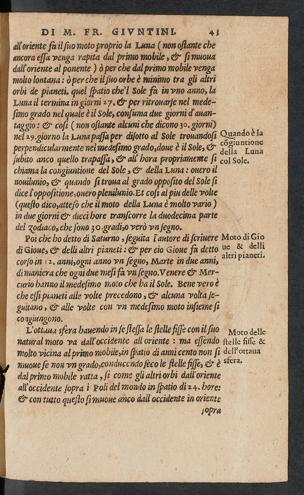 DI M. FR. GIVNTINI. 43
all'oriente fa il suo moto proprio la Luna (non ostante che
ancora essa venga rapita dal primo mobile, & si muoua
dall'oriente al ponente) ò per che dal primo mobile venga
molto lontana: ò per che il suo orbe è minimo tra gli altri
orbi de pianeti, quel spatio che'l Sole fa in vno anno, la
Luna il termina in giorni 27. & per ritrouarse nel mede-
simo grado nel quale è il Sole, consuma due giorni d'auan-
taggio: & così (non ostante alcuni che dicono 30. giorni)
nel 29. giorno la Luna passa per disotto al Sole trouandosi
perpendicularmente nel medesimo grado, doue è il Sole, &
subito anco quello trapassa, & all'hora propriamente si
chiama la congiuntione del Sole, & della Luna: ouero il
nouilunio, & quando si troua al grado opposito del Sole si
dice l'oppositione, ouero plenilunio. Et così al più delle volte
(questo dico, atteso che il moto della Luna è molto vario)
in due giorni & dieci hore transcorre la duodecima parte
del zodiaco, che sono 30. gradi, ò verò vn segno.
Quando è la
cõgiuntione
della Luna
col Sole.
Poi che ho detto di Saturno, seguita l'autore di scriuere
di Gioue, & delli altri pianeti: & per ciò Gioue fa detto
corso in 12. anni, ogni anno vn segno, Marte in due anni,
di maniera che ogni due mesi fa vn segno. Venere & Mer-
curio hanno il medesimo moco che ha il Sole. Bene vero è
che essi pianeti alle volte precedono, & alcuna volta se-
guitano, & alle volte con vn medesimo moto insieme si
congiungono.
Moto di Gio
ue & delli
altri pianeti.
L'ottaua sfera hauendo in se stessa le stelle fisse con il suo
natural moto va dall'occidente all'oriente: ma essendo
molto vicina al primo mobile, in spatio di anni cento non si
muoue se non vn grado, conducendo seco le stelle fisse, & è
dal primo mobile ratta, si come gli altri orbi dall'oriente
all'occidente sopra i Poli del mondo in spatio di 24. hore:
& con tutto questo si muoue anco dall'occidente in oriente
sopra
Moto delle
stelle fisse &
dell'ottaua
sfera.